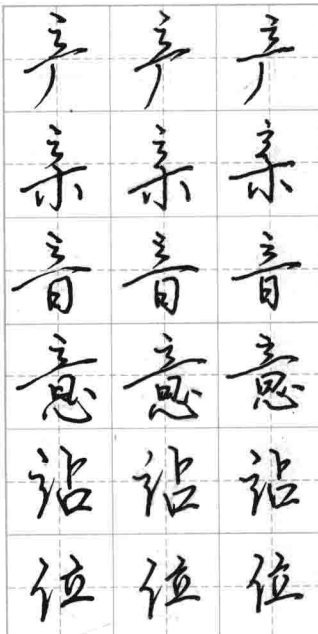 产 产 产
亲 亲 亲
音 音 音
意 意 意
站 站 站
位 位 位